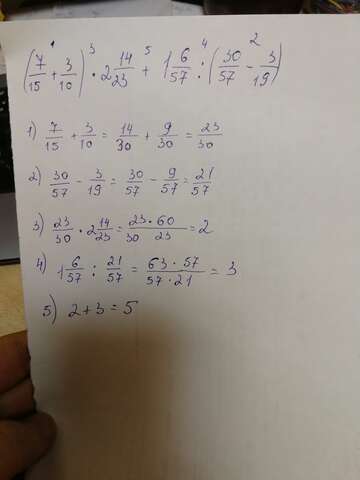 (7/15 + 3/10) · 2 14/23 + 1 6/57 : (30/57 - 3/19)
1) 7/15 + 3/10 = 14/30 + 9/30 = 23/30
2) 30/57 - 3/19 = 30/57 - 9/57 = 21/57
3) 23/30 · 2 14/23 = 23·60/30 23 = 2
4) 1 6/57 : 21/57 = 63·57/57·21 = 3
5) 2+3=5